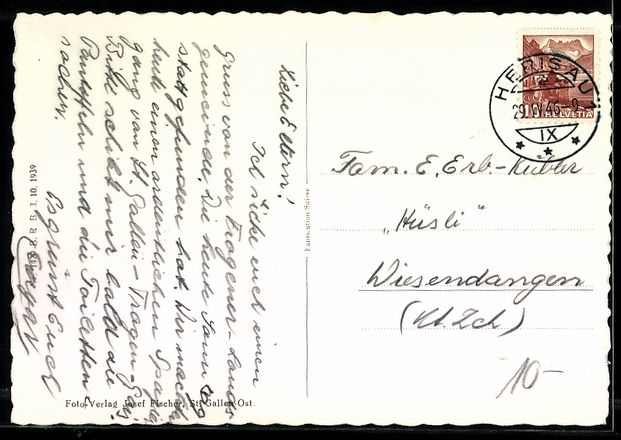 Liebe Eltern!
Ich sende euch einen
Gruss von der Trogener-Lands-
gemeinde, die heute Sonntag
stattgefunden hat. Wir machten
heute einen ordentlichen Spazier-
gang von St. Gallen-Trogen-
Bitte schickt mir bald die
Pantoffeln und die Toiletten-
sachen.
Es grüsst Euch
B. R. B. 3. 10. 1939
Foto-Verlag Josef Fischer, St. Gallen-Ost.
HERISAU 1
29.IV.46-9
IX
HELVETIA
Fam. E. Erb-Kübler
„Hüsli"
Wiesendangen
(Kt. Zch)
10-